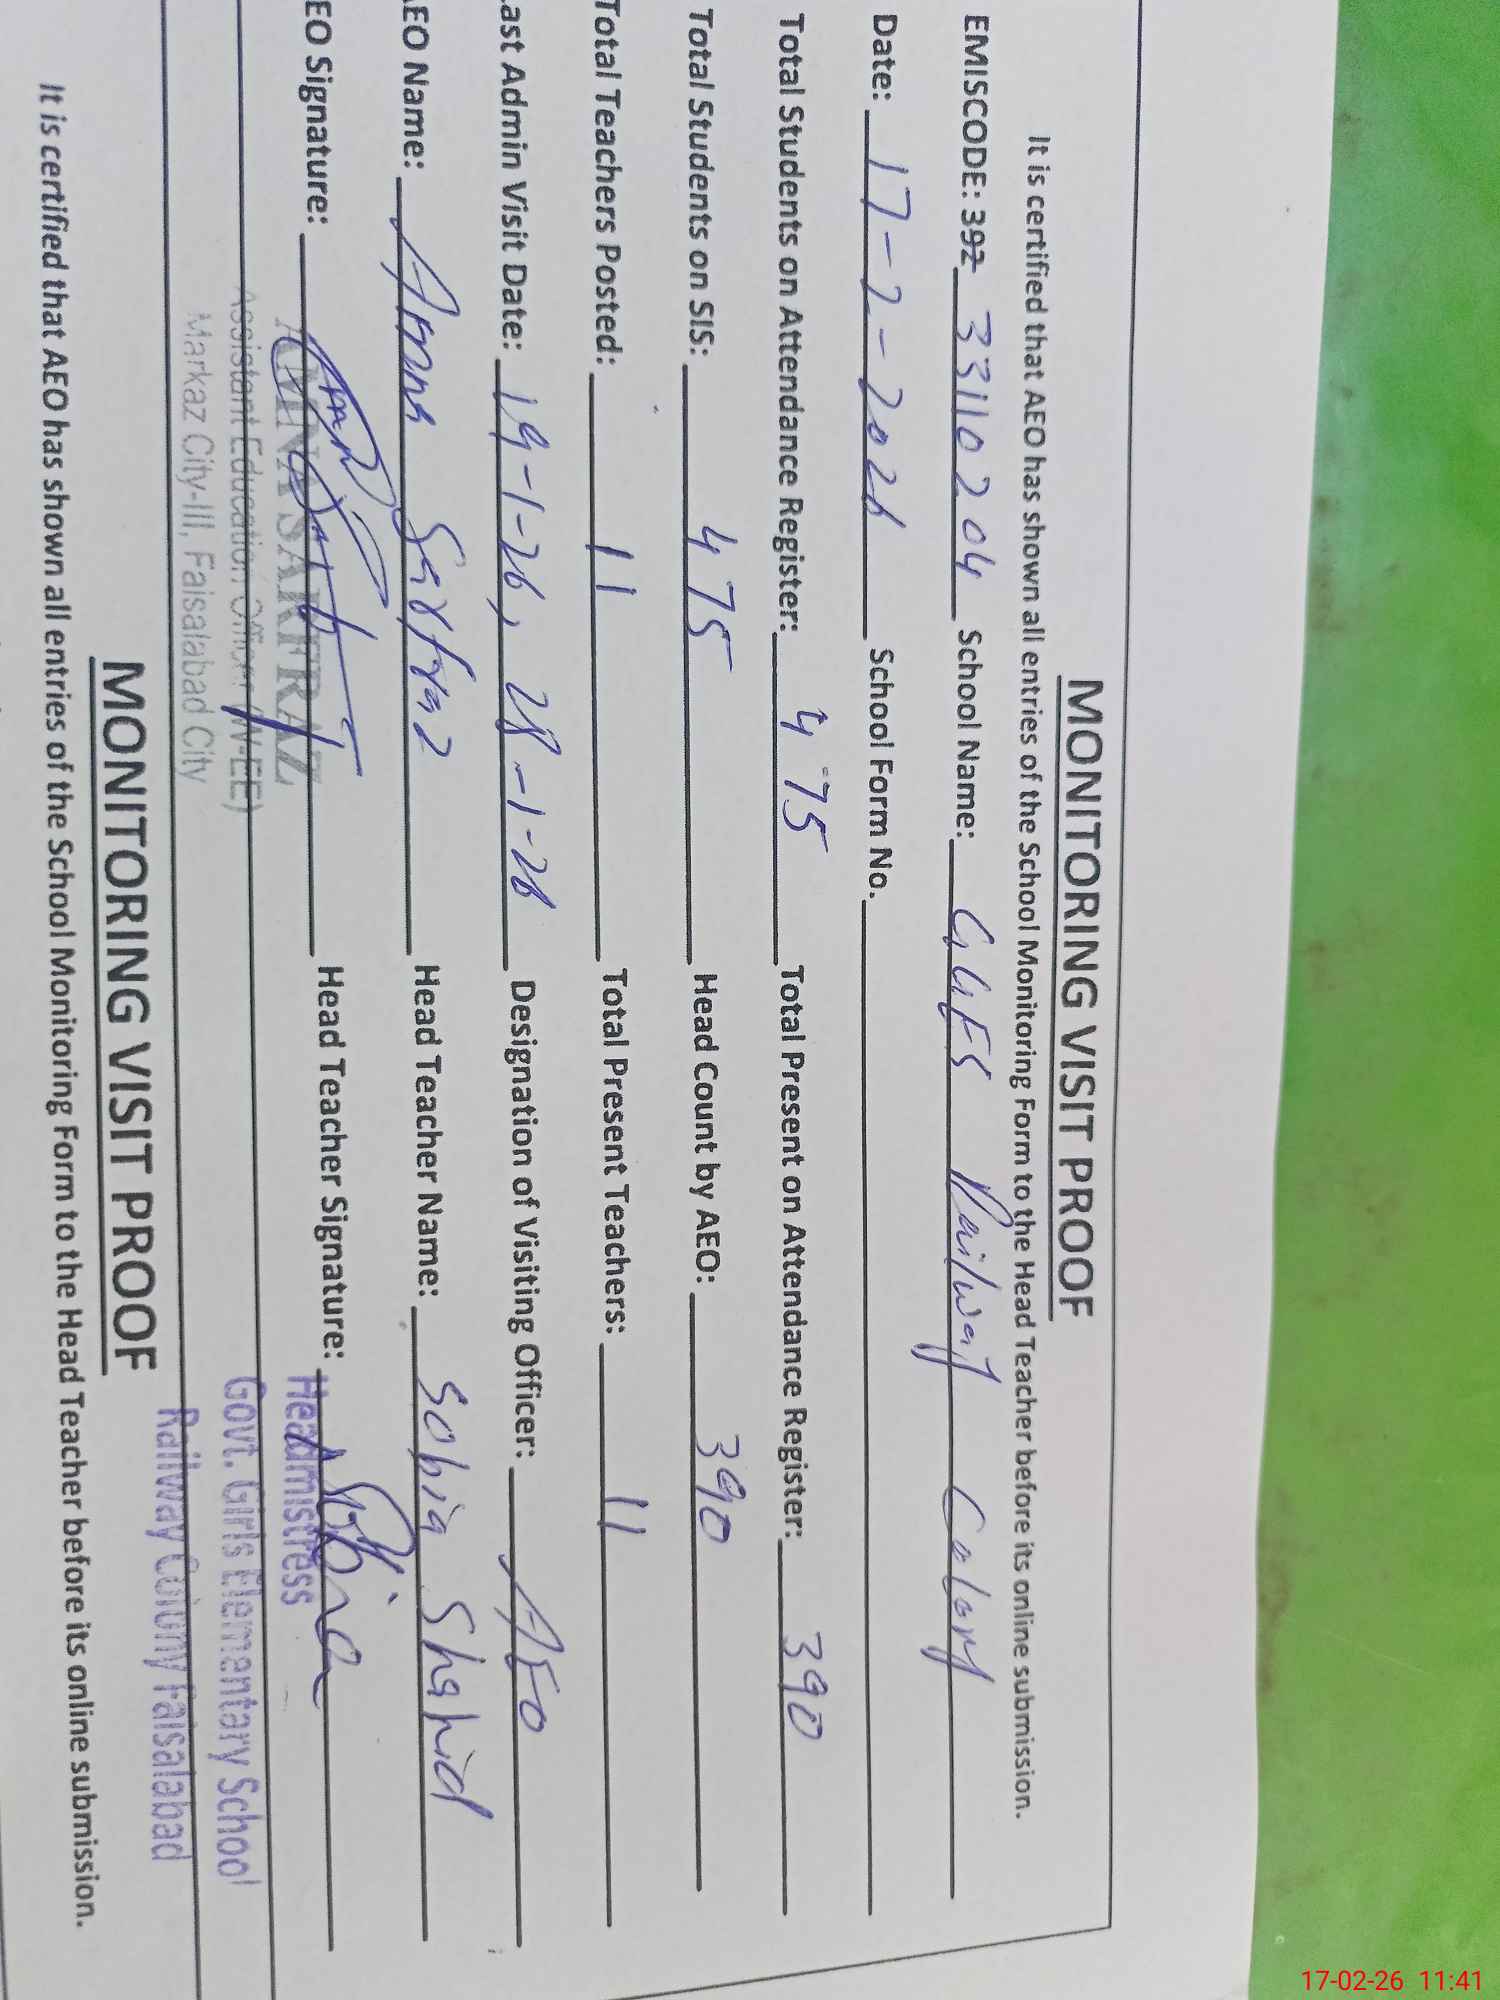 MONITORING VISIT PROOF
It is certified that AEO has shown all entries of the School Monitoring Form to the Head Teacher before its online submission.
EMISCODE: 392 33110204 School Name: GGES Railway Colony
Date: 17-2-2026 School Form No.
Total Students on Attendance Register: 475 Total Present on Attendance Register: 390
Total Students on SIS: 475 Head Count by AEO: 390
Total Teachers Posted: 11 Total Present Teachers: 11
Last Admin Visit Date: 19-1-26, 28-1-26 Designation of Visiting Officer: AEO
AEO Name: Amna Sarfraz Head Teacher Name: Sobia Shahid
EO Signature: Head Teacher Signature: Sobia
AMINA SARFRAZ Headmistress
Assistant Education Officer (W-EE) Govt. Girls Elemantary School
Markaz City-III, Faisalabad City Railway Colony Faisalabad
MONITORING VISIT PROOF
It is certified that AEO has shown all entries of the School Monitoring Form to the Head Teacher before its online submission.
17-02-26 11:41